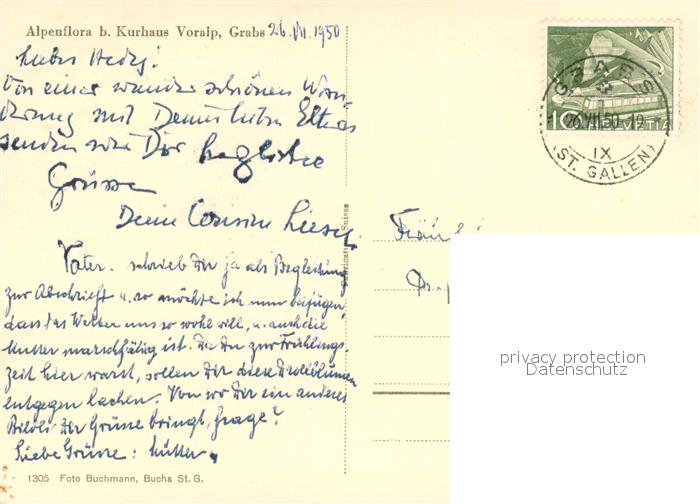 Alpenflora b. Kurhaus Voralp, Grabs 26.VII.1950
Liebes Hedy!
Von einer wunderschönen Wan-
derung mit Deinen lieben Eltern
senden wir Dir herzliche
Grüsse
Deine Cousine
Vater schrieb Dir ja als Begleitung
zur Abschrift u. so möchte ich nur beifügen,
dass das Wetter uns so wohl will, u. auch die
Mutter marschfähig ist. Da Du zur Frühlings-
zeit hier warst, sollen Dir diese
entgegen lachen. Von wo Dir ein anderes
Bildli Dir Grüsse bringt, frage?
Liebe Grüsse: Mutter.
1305 Foto Buchmann, Buchs St. G.
Suisse
GRABS
26.VII.50-19
IX
(ST. GALLEN)
10 HELVETIA
privacy protection
Datenschutz